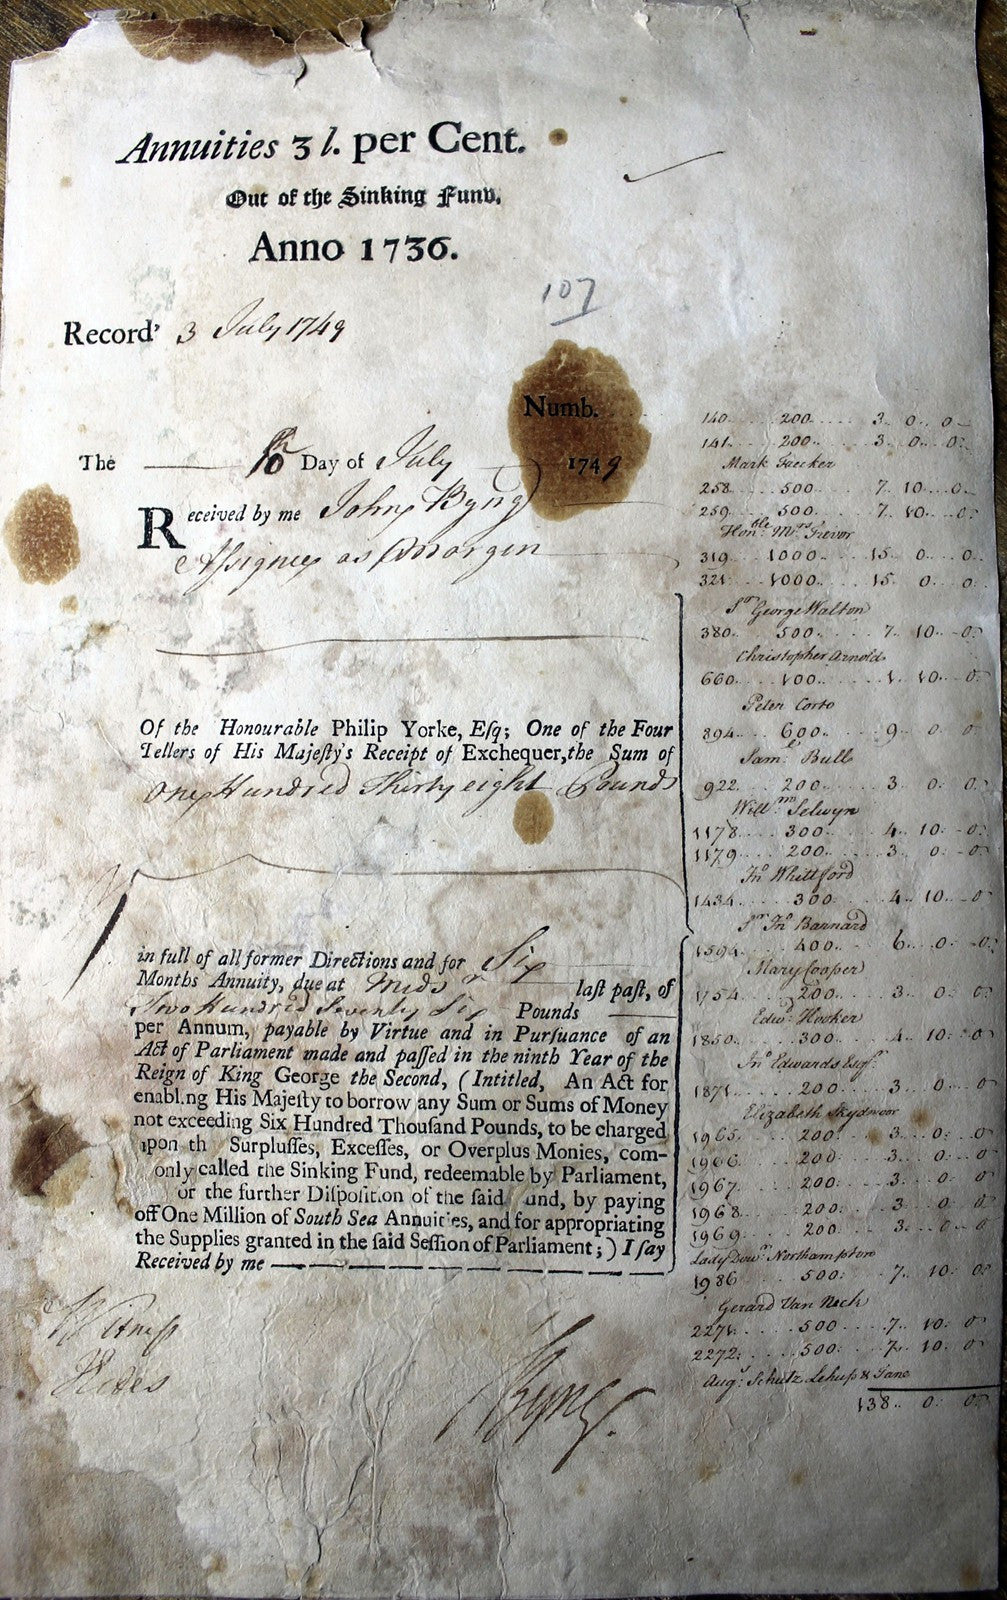 Annuities 3 l. per Cent.
Out of the Sinking Fund.
Anno 1736.
107
Record' 3 July 1749
Numb.
The 10th Day of July 1749
Received by me John Byng
Assignee as Margin
Of the Honourable Philip Yorke, Esq; One of the Four
Tellers of His Majesty's Receipt of Exchequer, the Sum of
One Hundred Thirty eight Pounds
in full of all former Directions and for Six
Months Annuity, due at Mids last past, of
Two Hundred Seventy Six Pounds
per Annum, payable by Virtue and in Pursuance of an
Act of Parliament made and passed in the ninth Year of the
Reign of King George the Second, (Intitled, An Act for
enabl.ng His Majesty to borrow any Sum or Sums of Money
not exceeding Six Hundred Thousand Pounds, to be charged
upon th Surplusses, Excesses, or Overplus Monies, com-
only called the Sinking Fund, redeemable by Parliament,
or the further Disposition of the said und, by paying
off One Million of South Sea Annuities, and for appropriating
the Supplies granted in the said Session of Parliament;) I say
Received by me
Witness
J Byng.
140 200 3 0 0
141 200 3 0 0
Mark
258 500 7 10 0
259 500 7 10 0
Honble Mrs Trevor
319 1000 15 0 0
321 1000 15 0 0
Sr George Walton
380 500 7 10 0
Christopher Arnold
660 100 1 10 0
Peter Corto
894 600 9 0 0
Saml Bull
922 200 3 0 0
Willm Selwyn
1178 300 4 10 0
1179 200 3 0 0
Jno Whittford
1434 300 4 10 0
Sr Jno Barnard
1594 400 6 0 0
Mary Cooper
1754 200 3 0 0
Edwd Hooker
1850 300 4 10 0
Jno Edwards Esqr
1871 200 3 0 0
Elizabeth
1965 200 3 0 0
1966 200 3 0 0
1967 200 3 0 0
1968 200 3 0 0
1969 200 3 0 0
Lady Dowr Northampton
1986 500 7 10 0
Gerard Van Neck
2271 500 7 10 0
2272 500 7 10 0
Augs Schutz & Jane
138 0 0